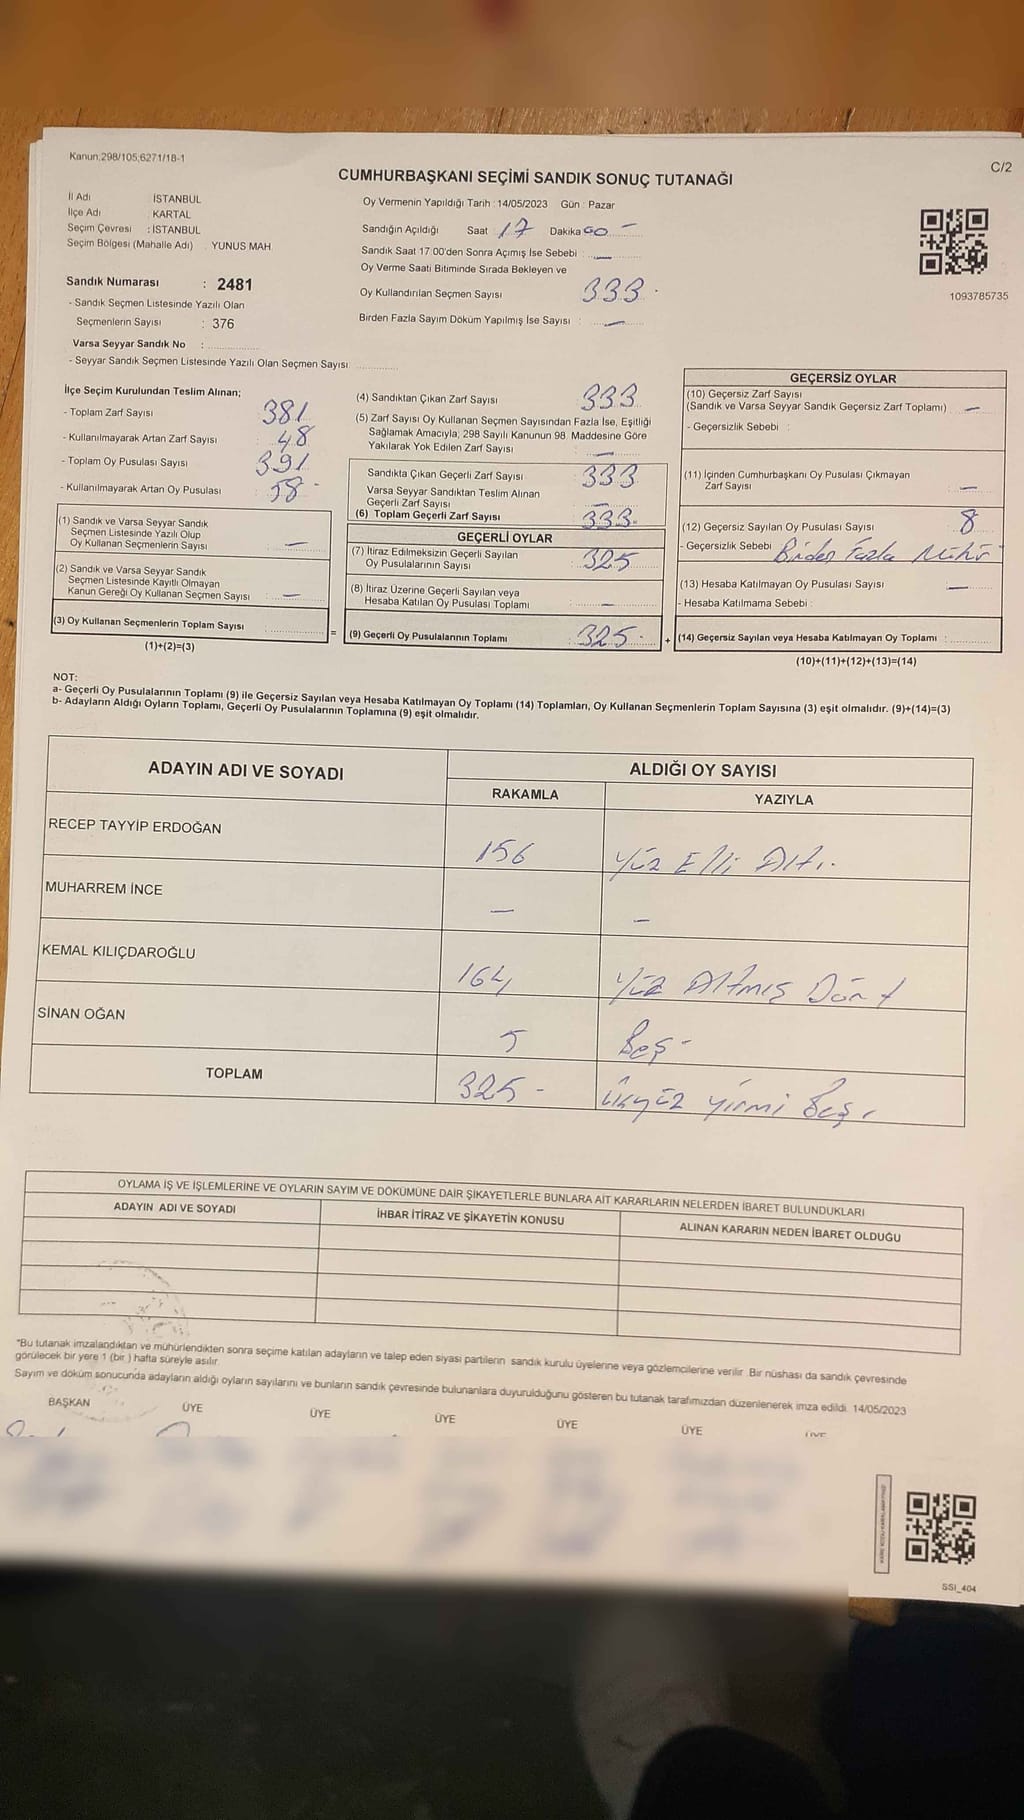 Kanun;298/105;6271/18-1
C/2
CUMHURBAŞKANI SEÇİMİ SANDIK SONUÇ TUTANAĞI
İl Adı İSTANBUL
İlçe Adı : KARTAL
Seçim Çevresi : İSTANBUL
Seçim Bölgesi (Mahalle Adı) YUNUS MAH.
Sandık Numarası : 2481
- Sandık Seçmen Listesinde Yazılı Olan
Seçmenlerin Sayısı : 376
Varsa Seyyar Sandık No :
- Seyyar Sandık Seçmen Listesinde Yazılı Olan Seçmen Sayısı
Oy Vermenin Yapıldığı Tarih : 14/05/2023 Gün : Pazar
Sandığın Açıldığı Saat : 17 Dakika 00 -
Sandık Saat 17:00'den Sonra Açımış İse Sebebi : -
Oy Verme Saati Bitiminde Sırada Bekleyen ve
Oy Kullandırılan Seçmen Sayısı 333
Birden Fazla Sayım Döküm Yapılmış İse Sayısı : -
1093785735
İlçe Seçim Kurulundan Teslim Alınan;
- Toplam Zarf Sayısı 381
- Kullanılmayarak Artan Zarf Sayısı : 48
- Toplam Oy Pusulası Sayısı 391
- Kullanılmayarak Artan Oy Pusulası : 58 -
(1) Sandık ve Varsa Seyyar Sandık
Seçmen Listesinde Yazılı Olup
Oy Kullanan Seçmenlerin Sayısı : -
(2) Sandık ve Varsa Seyyar Sandık
Seçmen Listesinde Kayıtlı Olmayan
Kanun Gereği Oy Kullanan Seçmen Sayısı : -
(3) Oy Kullanan Seçmenlerin Toplam Sayısı :
(1)+(2)=(3)
=
(4) Sandıktan Çıkan Zarf Sayısı : 333
(5) Zarf Sayısı Oy Kullanan Seçmen Sayısından Fazla İse, Eşitliği
Sağlamak Amacıyla; 298 Sayılı Kanunun 98. Maddesine Göre
Yakılarak Yok Edilen Zarf Sayısı : -
Sandıkta Çıkan Geçerli Zarf Sayısı : 333
Varsa Seyyar Sandıktan Teslim Alınan
Geçerli Zarf Sayısı : -
(6) Toplam Geçerli Zarf Sayısı : 333
GEÇERLİ OYLAR
(7) İtiraz Edilmeksizin Geçerli Sayılan
Oy Pusulalarının Sayısı : 325
(8) İtiraz Üzerine Geçerli Sayılan veya
Hesaba Katılan Oy Pusulası Toplamı : -
(9) Geçerli Oy Pusulalarının Toplamı : 325
+
GEÇERSİZ OYLAR
(10) Geçersiz Zarf Sayısı
(Sandık ve Varsa Seyyar Sandık Geçersiz Zarf Toplamı) : -
- Geçersizlik Sebebi :
(11) İçinden Cumhurbaşkanı Oy Pusulası Çıkmayan
Zarf Sayısı : -
(12) Geçersiz Sayılan Oy Pusulası Sayısı : 8
- Geçersizlik Sebebi : Birden Fazla Mühür
(13) Hesaba Katılmayan Oy Pusulası Sayısı : -
- Hesaba Katılmama Sebebi :
(14) Geçersiz Sayılan veya Hesaba Katılmayan Oy Toplamı :
(10)+(11)+(12)+(13)=(14)
NOT:
a- Geçerli Oy Pusulalarının Toplamı (9) ile Geçersiz Sayılan veya Hesaba Katılmayan Oy Toplamı (14) Toplamları, Oy Kullanan Seçmenlerin Toplam Sayısına (3) eşit olmalıdır. (9)+(14)=(3)
b- Adayların Aldığı Oyların Toplamı, Geçerli Oy Pusulalarının Toplamına (9) eşit olmalıdır.
ADAYIN ADI VE SOYADI ALDIĞI OY SAYISI
RAKAMLA YAZIYLA
RECEP TAYYİP ERDOĞAN 156 Yüz Elli Altı.
MUHARREM İNCE - -
KEMAL KILIÇDAROĞLU 164 Yüz Altmış Dört
SİNAN OĞAN 5 Beş -
TOPLAM 325 - üçyüz yirmi Beş
OYLAMA İŞ VE İŞLEMLERİNE VE OYLARIN SAYIM VE DÖKÜMÜNE DAİR ŞİKAYETLERLE BUNLARA AİT KARARLARIN NELERDEN İBARET BULUNDUKLARI
ADAYIN ADI VE SOYADI İHBAR İTİRAZ VE ŞİKAYETİN KONUSU ALINAN KARARIN NEDEN İBARET OLDUĞU
*Bu tutanak imzalandıktan ve mühürlendikten sonra seçime katılan adayların ve talep eden siyasi partilerin sandık kurulu üyelerine veya gözlemcilerine verilir. Bir nüshası da sandık çevresinde
görülecek bir yere 1 (bir ) hafta süreyle asılır.
Sayım ve döküm sonucunda adayların aldığı oyların sayılarını ve bunların sandık çevresinde bulunanlara duyurulduğunu gösteren bu tutanak tarafımızdan düzenlenerek imza edildi. 14/05/2023
BAŞKAN ÜYE ÜYE ÜYE ÜYE ÜYE ÜYE
SSI_404